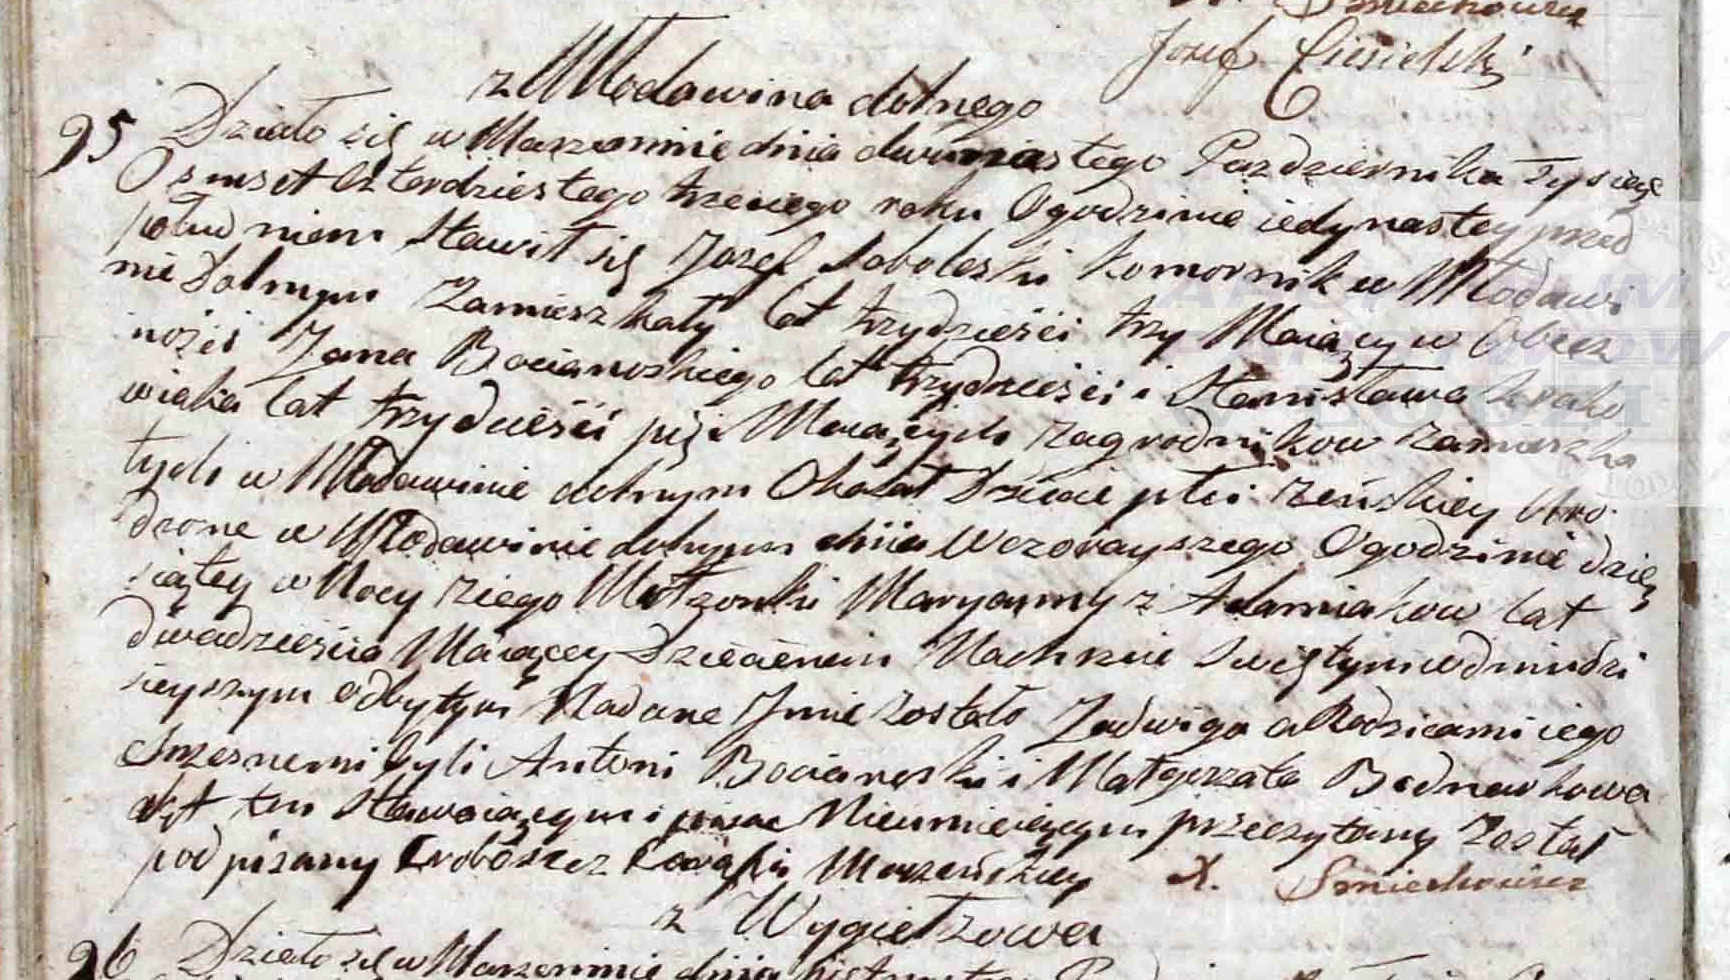 X. Smiechowicz
Jozef Ciesielski
z Włodawina dolnego
95 Działo się w Marzeninie dnia dwunastego Pazdziernika Tysiąc
Osmset czterdziestego trzeciego roku Ogodzinie iedynastey przed
południem Stawił się Jozef Soboleski komornik w Włodawi
nie Dolnym Zamieszkały lat trzydzieści trzy Maiący w Obec
ności Jana Bocianoskiego lat trzydzieści i Stanisława krako
wiaka lat trzydzieści pięć Maiących zagrodnikow zamieszka
łych w Włodawinie dolnym Okazał Dziecie płci zeńskiey Uro
dzone w Włodawinie dolnym dnia Wczorayszego Ogodzinie dzie
siątey w Nocy ziego Małżonki Maryanny z Adamiakow lat
dwadzieścia Maiącey Dziecieniu Nachrzcie Swiętym wdniu dzi
sieyszym odbytym Nadane Jmie zostało Jadwiga a Rodzicami iego
Chrzesnemi byli Antoni Bocianoski i Małgorzata Bednarkowa
Akt ten Stawaiącym i pisac Nieumieiącym przeczytany Został
podpisany Proboszcz Parafii Marzeńskiey X. Smiechowicz
z Wygiełzowa
96 Działo się w Marzeninie dnia